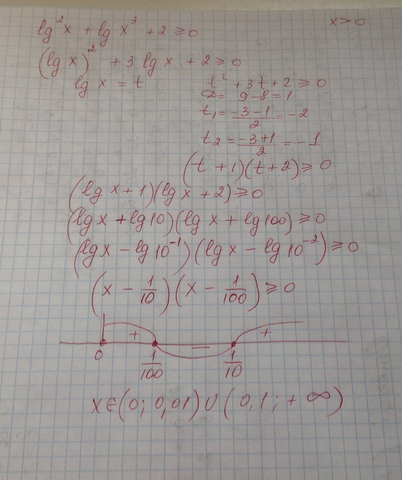 lg²x + lg x³ + 2 ≥ 0
x > 0
(lg x)² + 3 lg x + 2 ≥ 0
lg x = t
t² + 3t + 2 ≥ 0
D = 9 - 8 = 1
t₁ = (-3 - 1)/2 = -2
t₂ = (-3 + 1)/2 = -1
(t + 1)(t + 2) ≥ 0
(lg x + 1)(lg x + 2) ≥ 0
(lg x + lg 10)(lg x + lg 100) ≥ 0
(lg x - lg 10⁻¹)(lg x - lg 10⁻²) ≥ 0
(x - 1/10)(x - 1/100) ≥ 0
+ − +
0 1/100 1/10
x ∈ (0; 0,01) ∪ (0,1; +∞)